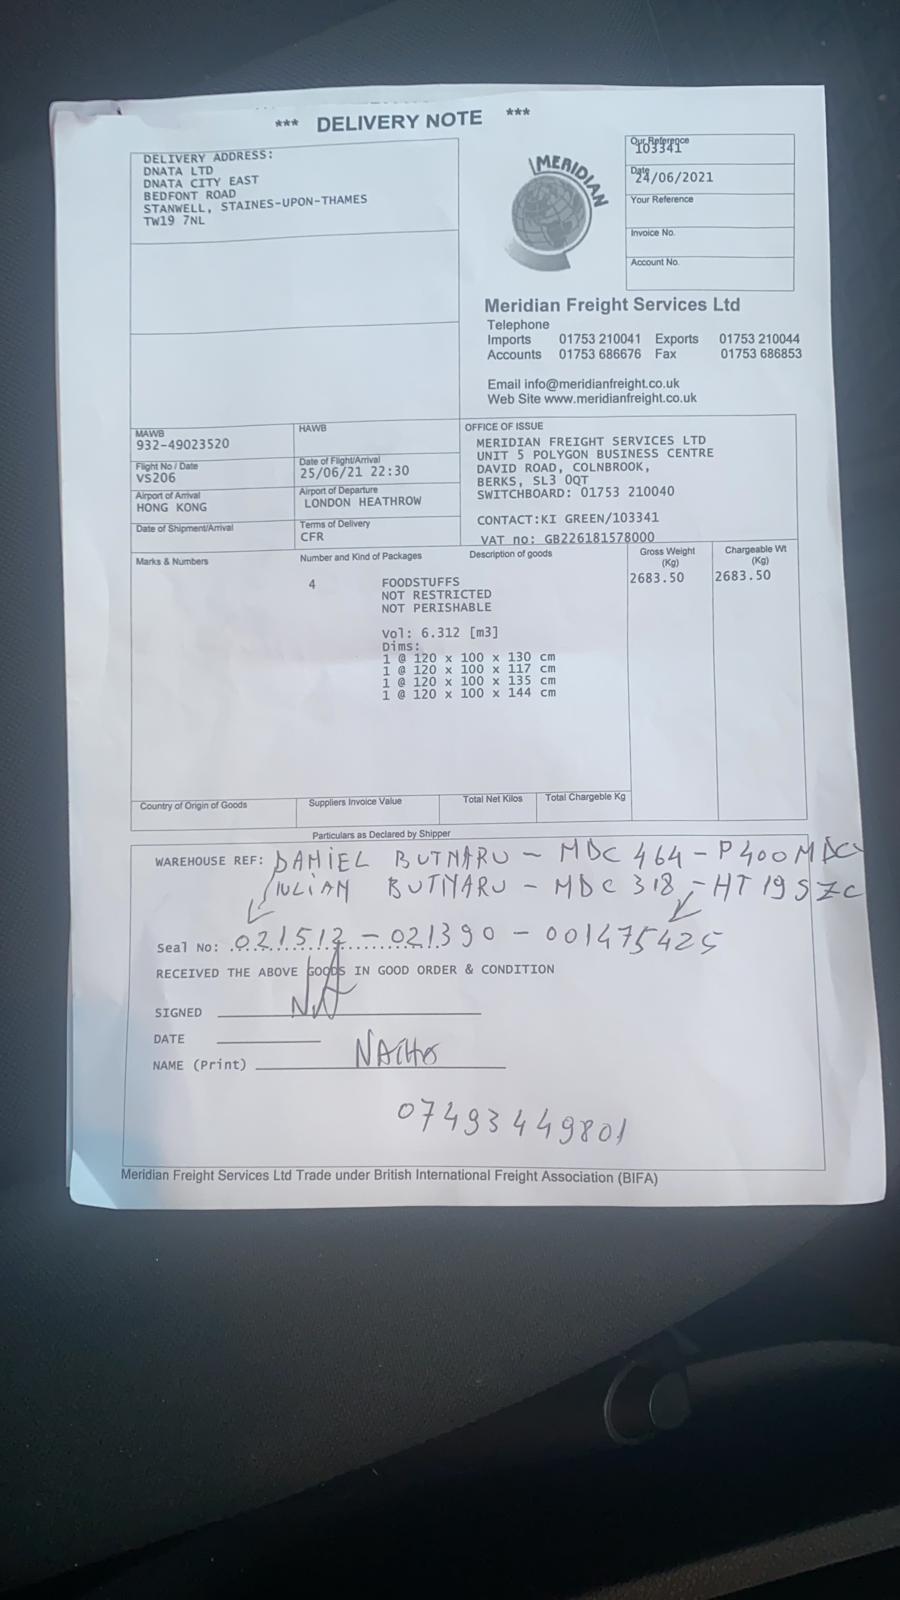 *** DELIVERY NOTE ***
DELIVERY ADDRESS:
DNATA LTD
DNATA CITY EAST
BEDFONT ROAD
STANWELL, STAINES-UPON-THAMES
TW19 7NL
MERIDIAN
Our Reference
103341
Date
24/06/2021
Your Reference
Invoice No.
Account No.
Meridian Freight Services Ltd
Telephone
Imports 01753 210041 Exports 01753 210044
Accounts 01753 686676 Fax 01753 686853
Email info@meridianfreight.co.uk
Web Site www.meridianfreight.co.uk
MAWB
932-49023520
HAWB
Flight No / Date
VS206
Date of Flight/Arrival
25/06/21 22:30
Airport of Arrival
HONG KONG
Airport of Departure
LONDON HEATHROW
Date of Shipment/Arrival
Terms of Delivery
CFR
OFFICE OF ISSUE
MERIDIAN FREIGHT SERVICES LTD
UNIT 5 POLYGON BUSINESS CENTRE
DAVID ROAD, COLNBROOK,
BERKS, SL3 0QT
SWITCHBOARD: 01753 210040
CONTACT:KI GREEN/103341
VAT no: GB226181578000
Marks & Numbers Number and Kind of Packages Description of goods Gross Weight (Kg) Chargeable Wt (Kg)
4 FOODSTUFFS 2683.50 2683.50
NOT RESTRICTED
NOT PERISHABLE
Vol: 6.312 [m3]
Dims:
1 @ 120 x 100 x 130 cm
1 @ 120 x 100 x 117 cm
1 @ 120 x 100 x 135 cm
1 @ 120 x 100 x 144 cm
Country of Origin of Goods Suppliers Invoice Value Total Net Kilos Total Chargeble Kg
Particulars as Declared by Shipper
WAREHOUSE REF: DANIEL BUTNARU - MDC 464 - P400MDC
IULIAN BUTNARU - MDC 318 - HT19SZC
Seal No: 021512 - 021390 - 001475425
RECEIVED THE ABOVE GOODS IN GOOD ORDER & CONDITION
SIGNED
DATE
NAME (Print) NACHO
07493449801
Meridian Freight Services Ltd Trade under British International Freight Association (BIFA)